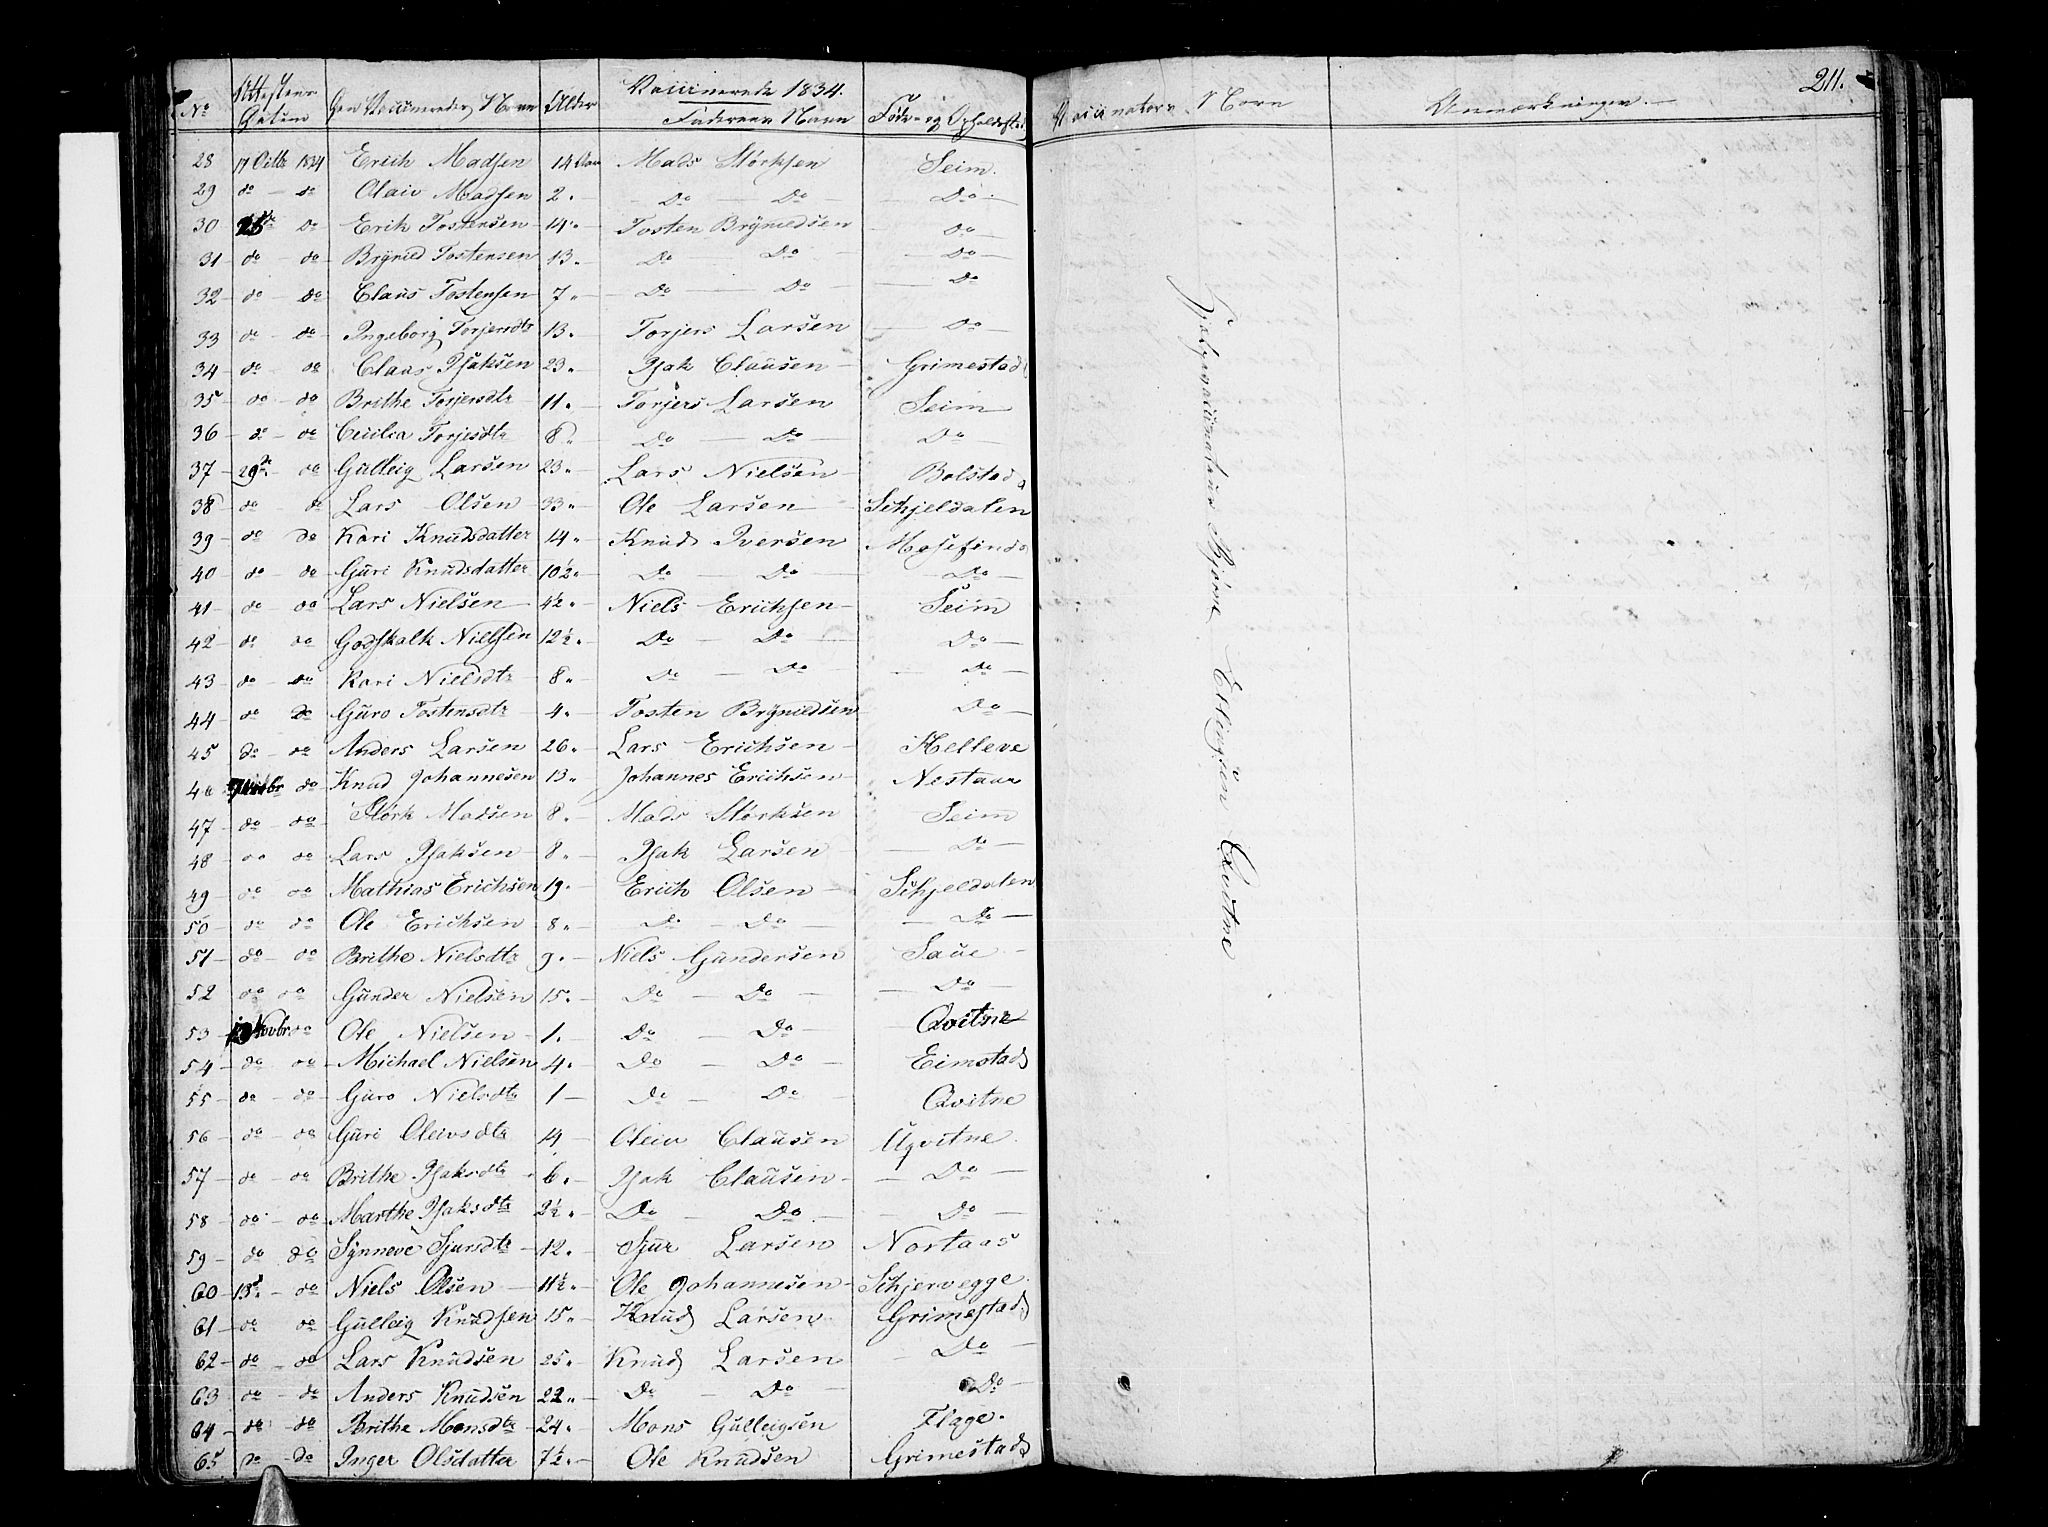 Vaccinerede 1834.
No Attestens Datum Den Vaccineredes Navn Alder Faderens Navn Føde- og Opholdssted
28 17 Octbr 1834 Erich Madsen 14 Mads Størksen Seim
29 do do Olaiv Madsen 2 Do Do Do
30 do Erik Tostensen 14 Tosten Brÿnildsen Do
31 do do Brÿnild Tostensen 13 Do Do Do
32 do do Claus Tostensen 7 Do Do Do
33 do do Ingeborg Torjersdtr 13 Torjers Larsen Do
34 do do Claus Isaksen 23 Isak Clausen Grimestad
35 do do Brithe Torjersdtr 11 Torjers Larsen Seim
36 do do Cecilia Torjesdtr 8 Do Do Do
37 29de do Gulleig Larsen 23 Lars Nielsen Bolstad
38 do do Lars Olsen 33 Ole Larsen Schjeldalen
39 do do Kari Knudsdatter 14 Knud Iversen Mosefind
40 do do Guri Knudsdatter 10½ Do Do Do
41 do do Lars Nielsen 4½ Niels Erichsen Seim
42 do do Godskalk Nielsen 12½ Do Do Do
43 do do Kari Nielsdtr 8 Do Do Do
44 do do Guro Tostensdtr 4 Tosten Brÿnildsen Do
45 do do Anders Larsen 26 Lars Erichsen Helleve
46 do Knud Johannesen 13 Johannes Erichsen Nestaas
47 do do Størk Madsen 8 Mads Størksen Seim
48 do do Lars Isaksen 8 Isak Larsen Do
49 do do Mathias Erichsen 19 Erich Olsen Schjeldalen
50 do do Ole Erichsen 8 Do Do Do
51 do do Brithe Nielsdtr 9 Niels Gundersen Saue
52 do do Gunder Nielsen 15 Do Do Do
53 Novbr do Ole Nielsen 1 Do Do Qvitne
54 do do Michael Nielsen 4 Do Do Eimstad
55 do do Guro Nielsdtr 1 Do Do Qvitne
56 do do Guri Oleivsdtr 14 Oleiv Clausen Uqvitne
57 do do Brithe Isaksdtr 6 Isak Clausen Do
58 do do Marthe Isaksdtr 2½ Do Do Do
59 do do Synneve Sjursdtr 12 Sjur Larsen Nortaas
60 13de do Niels Olsen 11½ Ole Johannesen Schjervegge
61 do do Gulleig Knudsen 15 Knud Larsen Grimestad
62 do do Lars Knudsen 25 Knud Larsen Do
63 do do Anders Knudsen 22 Do Do Do
64 do do Brithe Monsdtr 24 Mons Gulleigsen Flage
65 do do Inger Olsdatter 7½ Ole Knudsen Grimestad
211.
Vaccinatørs Navn Anmærkninger
Hjælpevaccinateur Bjørn Ellingsen Qvitne